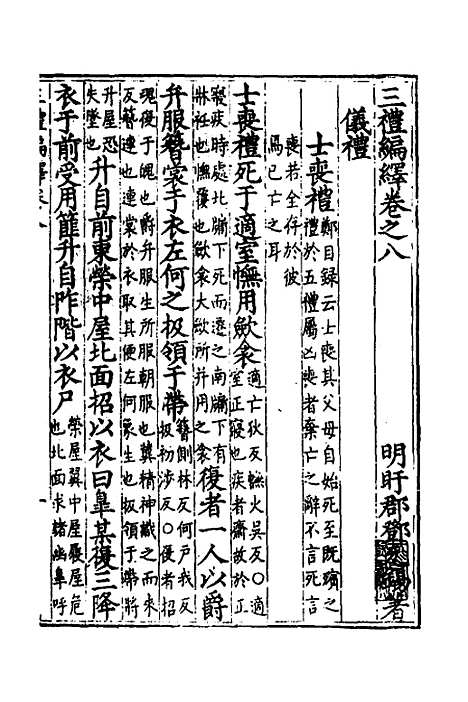 三禮編繹卷之八
明盱郡鄧
著
儀禮
士喪禮 鄭目錄云士喪其父母自始死至既殯之
禮於五禮屬凶喪者棄亡之辭不言死言
喪若全存於彼
焉已亡之耳
士喪禮死于適室幠用歛衾 適亡狄反幠火吳反○適
室正寢也疾者齋故於正
寢疾時處北牖下死而遷之南牖下有
牀衽也幠覆也歛衾大歛所并用之衾 復者一人以爵
弁服簪裳于衣左何之扱領于帶 簪側林反何戶我反
扱初涉反○復者招
魂復于魄也爵弁服生所服朝服也冀精神識之而來
反簪連也連裳於衣取其便左何象生也扱領于帶將
升屋恐
失墜也 升自前東榮中屋北面招以衣曰皐某復三降
衣于前受用篚升自阼階以衣尸 榮屋翼中屋屋危
也北面求諸幽皐呼
三禮編繹卷八
一